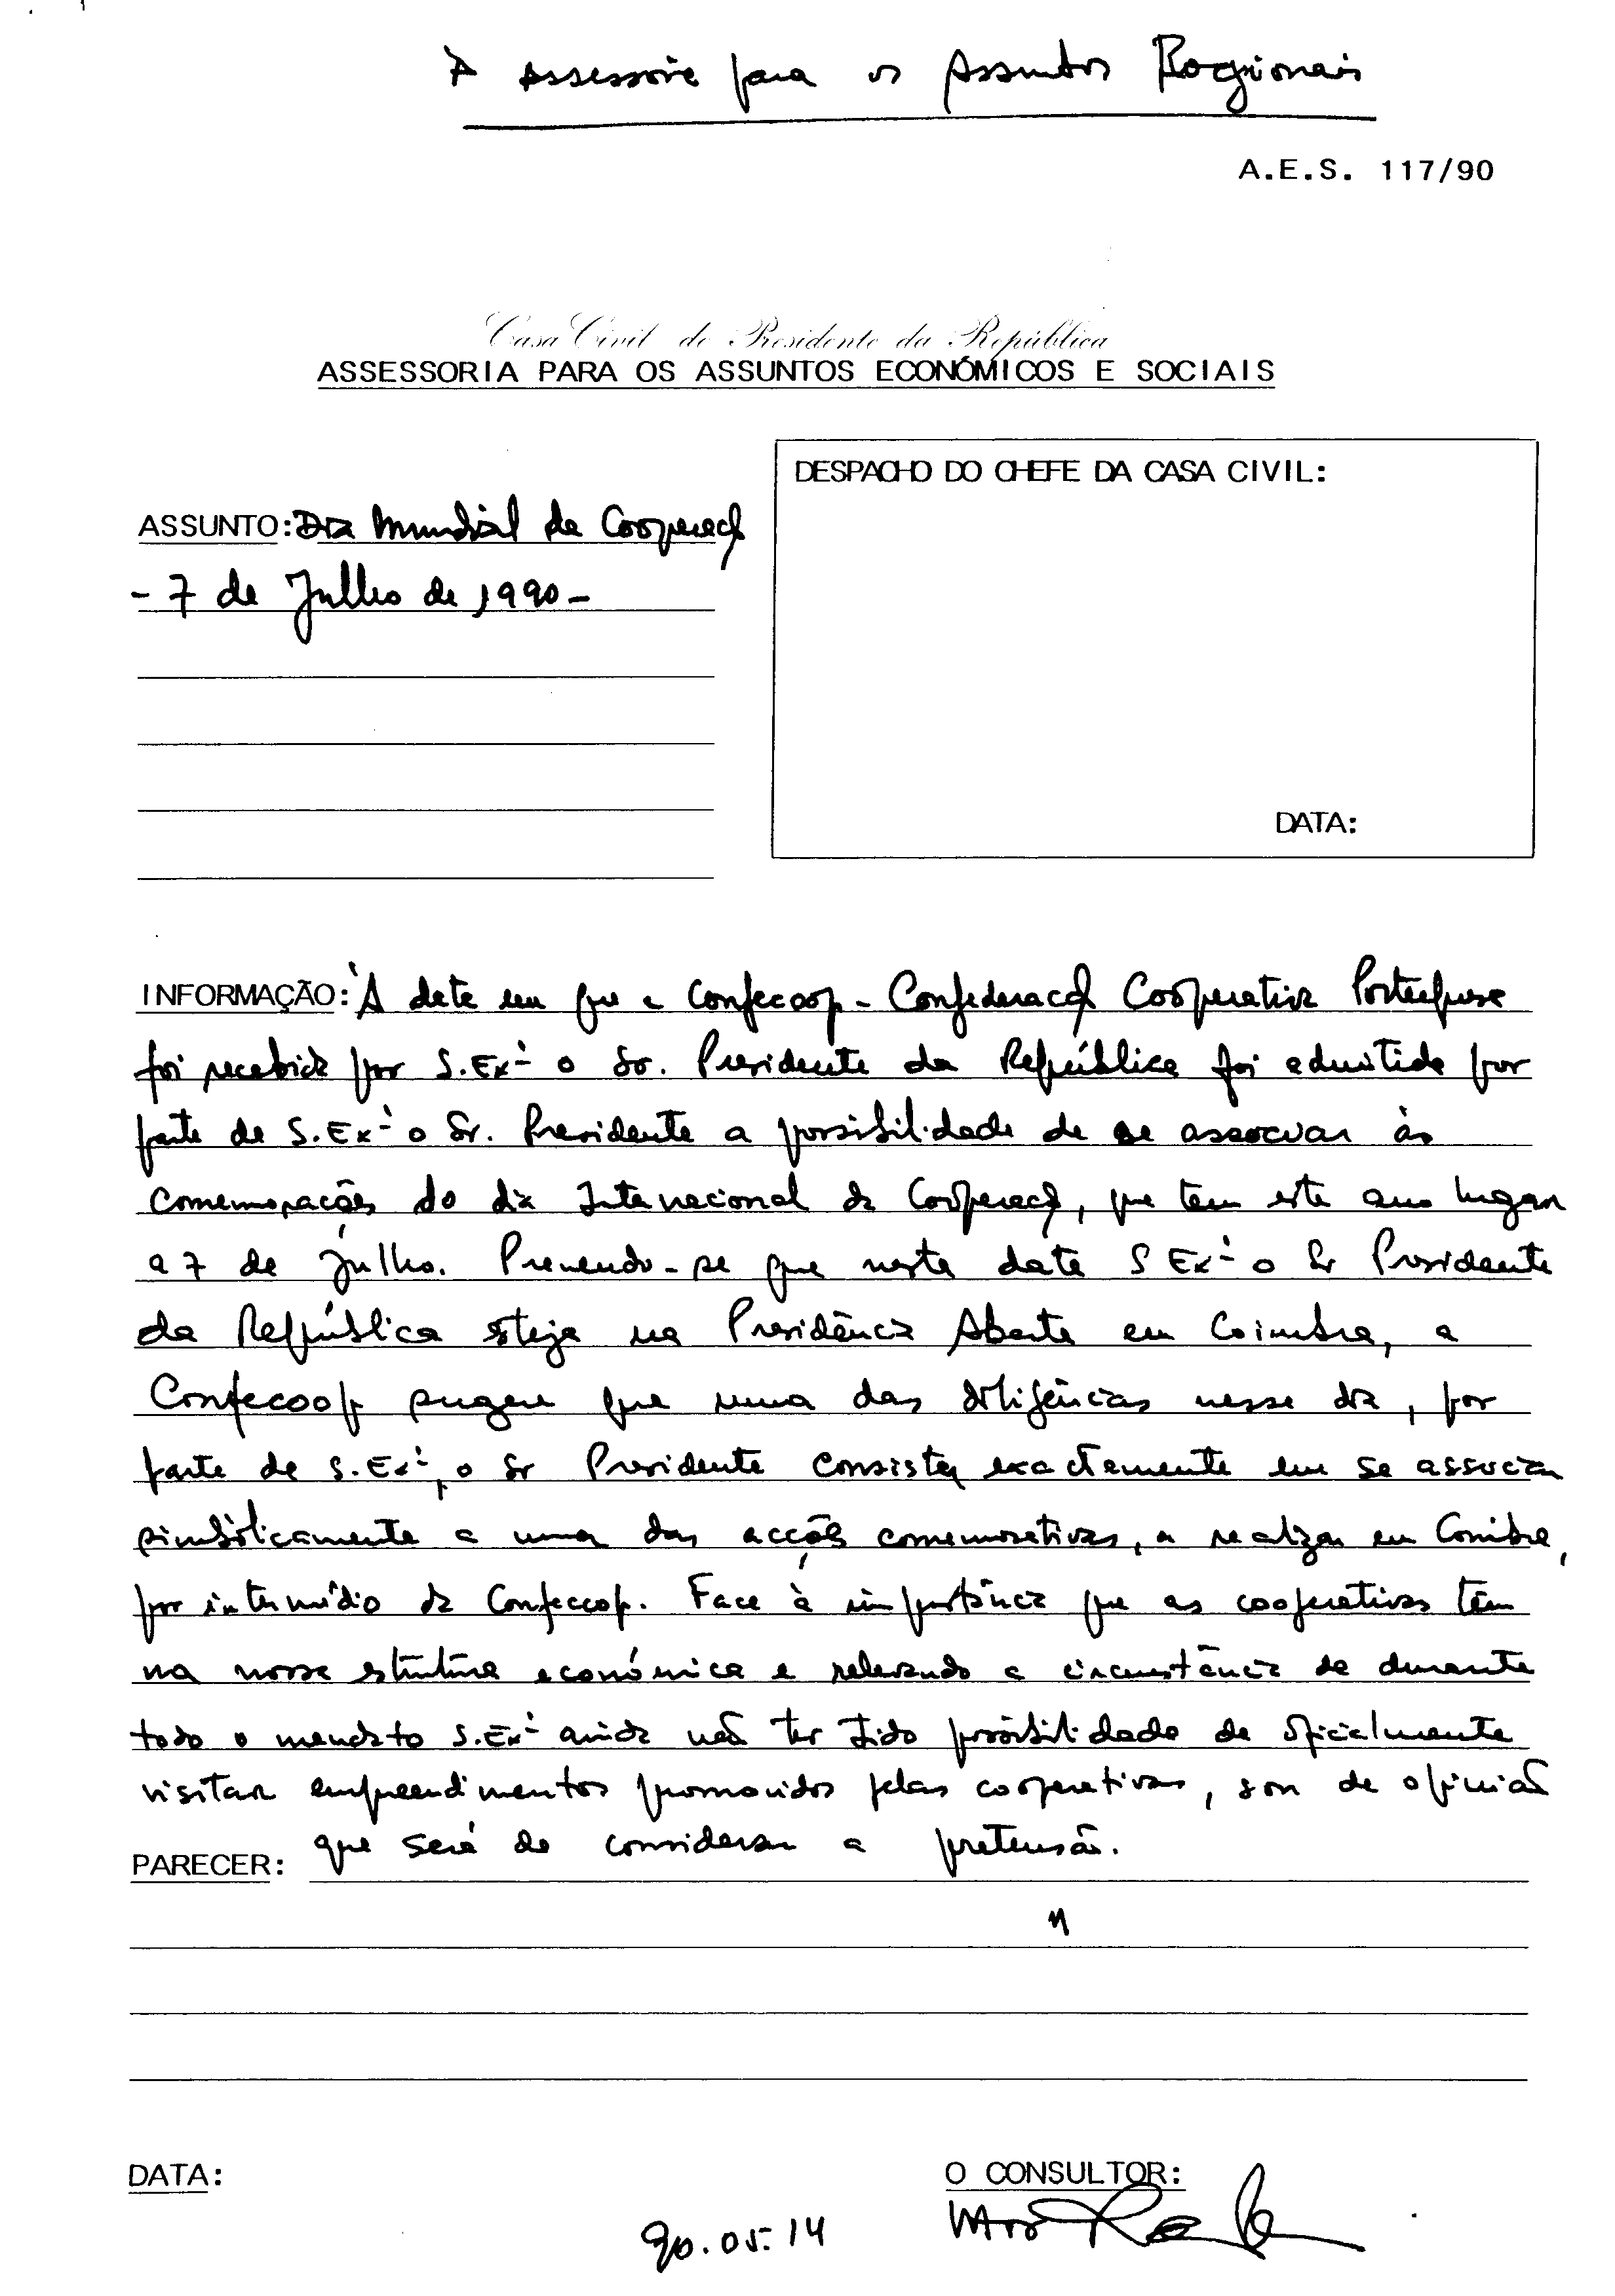 À Assessoria para os Assuntos Regionais
A.E.S. 117/90
Casa Civil do Presidente da República
ASSESSORIA PARA OS ASSUNTOS ECONÓMICOS E SOCIAIS
DESPACHO DO CHEFE DA CASA CIVIL:
ASSUNTO: Dia Mundial da Cooperação
- 7 de Julho de 1990 -
DATA:
INFORMAÇÃO: À data em que a Confecoop - Confederação Cooperativa Portuguesa
foi recebida por S.Exª o Sr. Presidente da República foi admitida por
parte de S.Exª o Sr. Presidente a possibilidade de se associar às
comemorações do dia Internacional da Cooperação, que tem este ano lugar
a 7 de Julho. Prevendo-se que nesta data S Exª o Sr Presidente
da República esteja na Presidência Aberta em Coimbra, a
Confecoop sugere que uma das diligências nesse dia, por
parte de S.Exª, o Sr Presidente consista exactamente em se associar
simbólicamente a uma das acções comemorativas, a realizar em Coimbra,
por intermédio da Confecoop. Face à importância que as cooperativas têm
na nossa estrutura económica e relevando a circunstância de durante
todo o mandato S.Exª ainda não ter tido possibilidade de oficialmente
visitar empreendimentos promovidos pelas cooperativas, sou de opinião
que será de considerar a pretensão.
PARECER:
DATA:
O CONSULTOR:
90.05.14